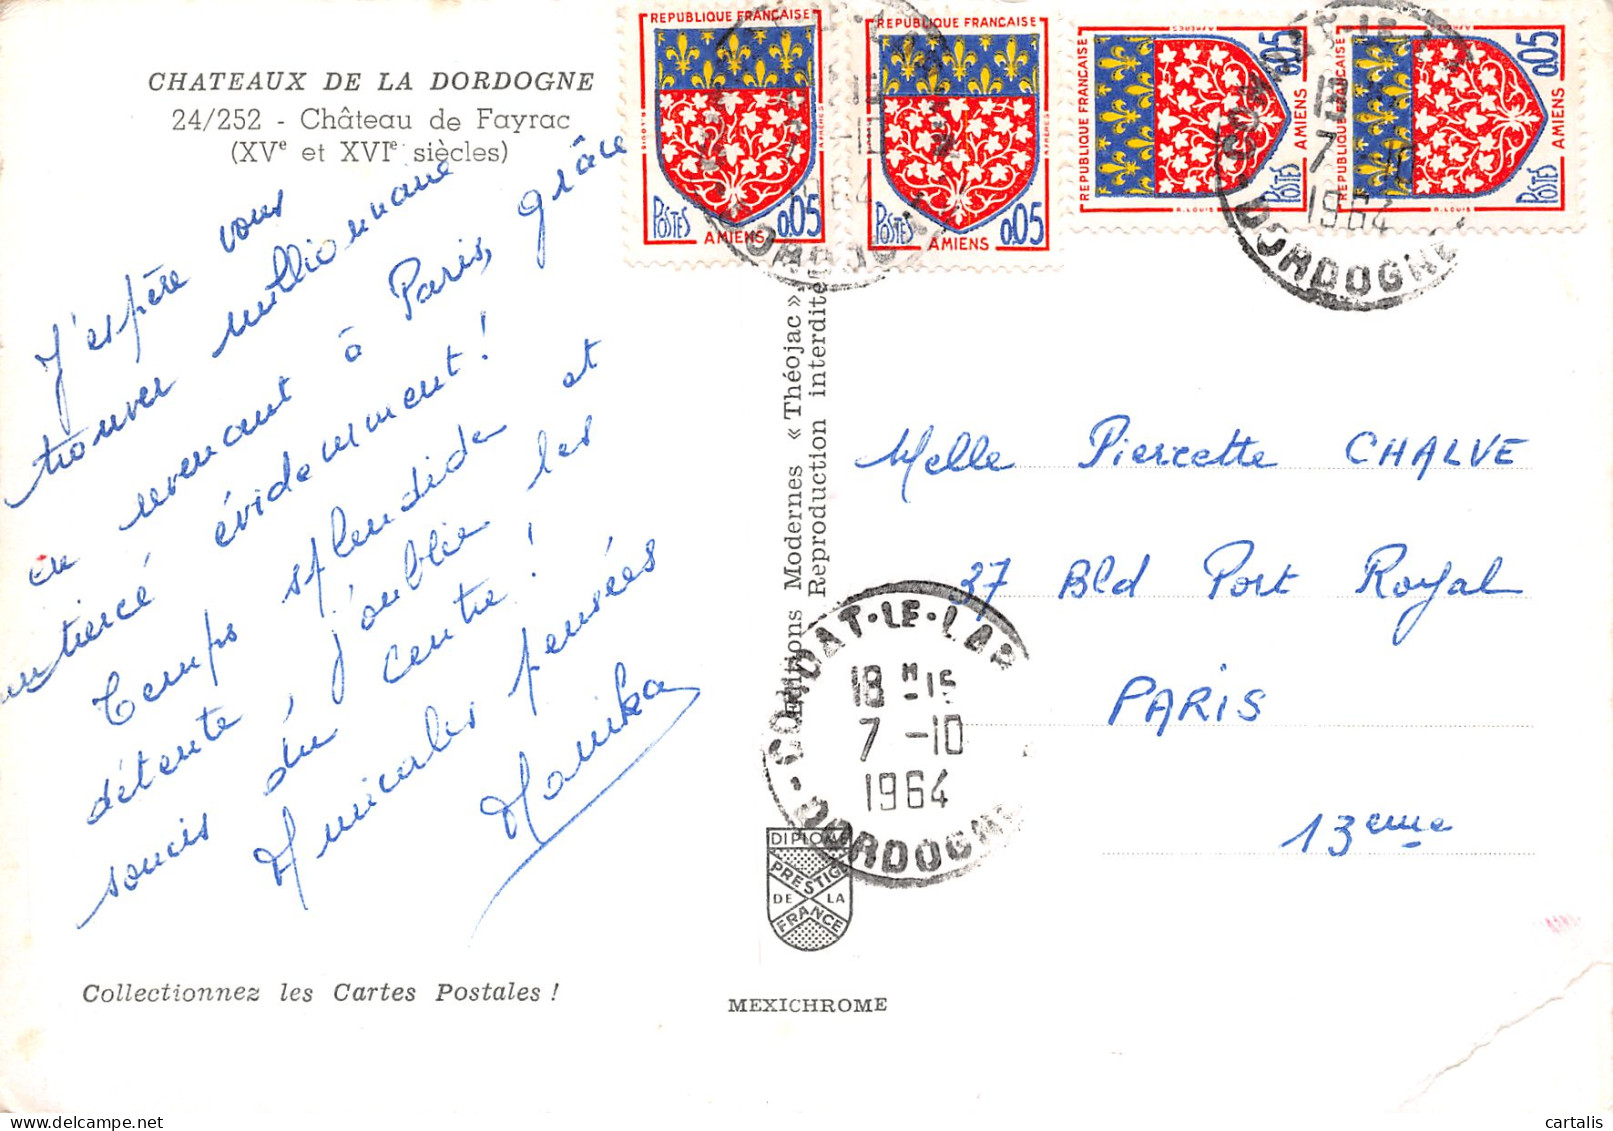 CHATEAUX DE LA DORDOGNE
24/252 - Château de Fayrac
(XVe et XVIe siècles)
J'espère vous
trouver millionnaire
en revenant à Paris, grâce
au tiercé évidemment !
Temps splendide et
détente, j'oublie les
soucis du centre !
Amicales pensées
Monika
Collectionnez les Cartes Postales !
Editions Modernes « Théojac »
Reproduction interdite
MEXICHROME
DIPLOME
PRESTIGE
DE LA
FRANCE
REPUBLIQUE FRANÇAISE
POSTES
0,05
AMIENS
REPUBLIQUE FRANÇAISE
POSTES
0,05
AMIENS
REPUBLIQUE FRANÇAISE
POSTES
0,05
AMIENS
REPUBLIQUE FRANÇAISE
POSTES
0,05
AMIENS
18 -15
7 -10
1964
DORDOGNE
CONDAT-LE-LAR
18 H -15
7 -10
1964
DORDOGNE
Melle Pierrette CHALVE
37 Bld Port Royal
PARIS
13eme
cartalis
delcampe.net